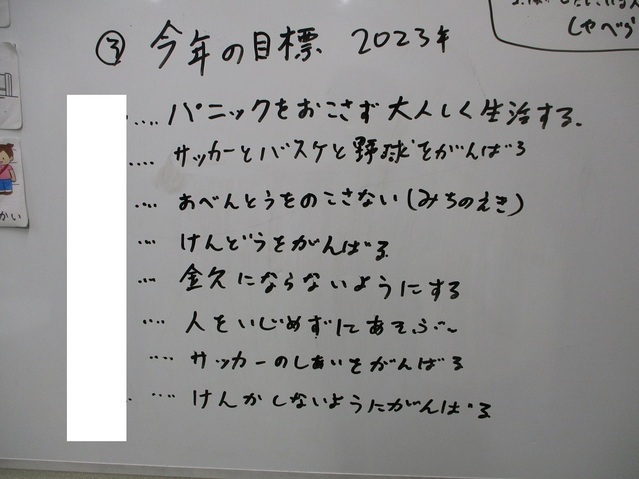 ③ 今年の目標 2023年
.... パニックをおこさず大人しく生活する.
.... サッカーとバスケと野球をがんばる
... おべんとうをのこさない(みちのえき)
... けんどうをがんばる
... 金欠にならないようにする
.... 人をいじめずにあそぶ~
.... サッカーのしあいをがんばる
.... けんかしないようにがんばる
しゃべり
かい